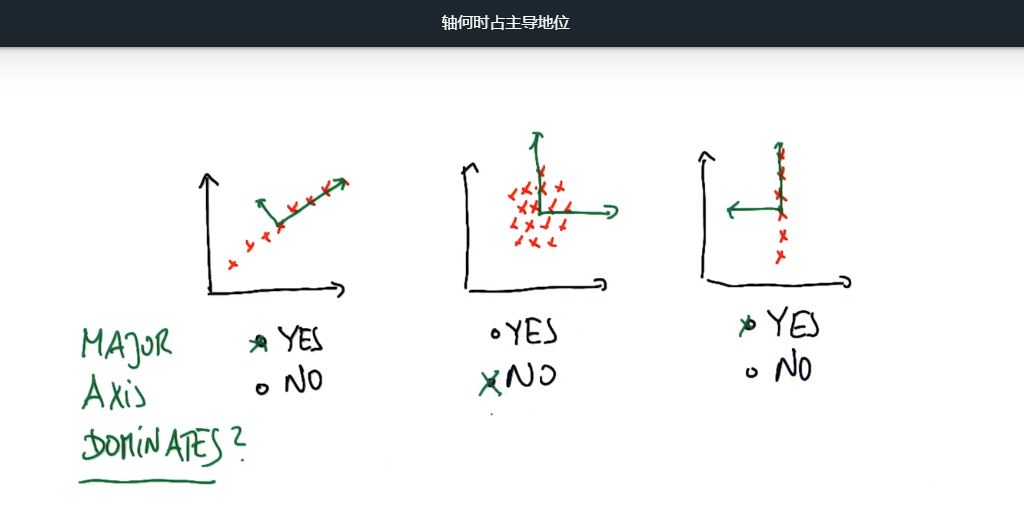 轴何时占主导地位
MAJOR
AXiS
DOMiNATES?
YES
NO
YES
NO
YES
NO